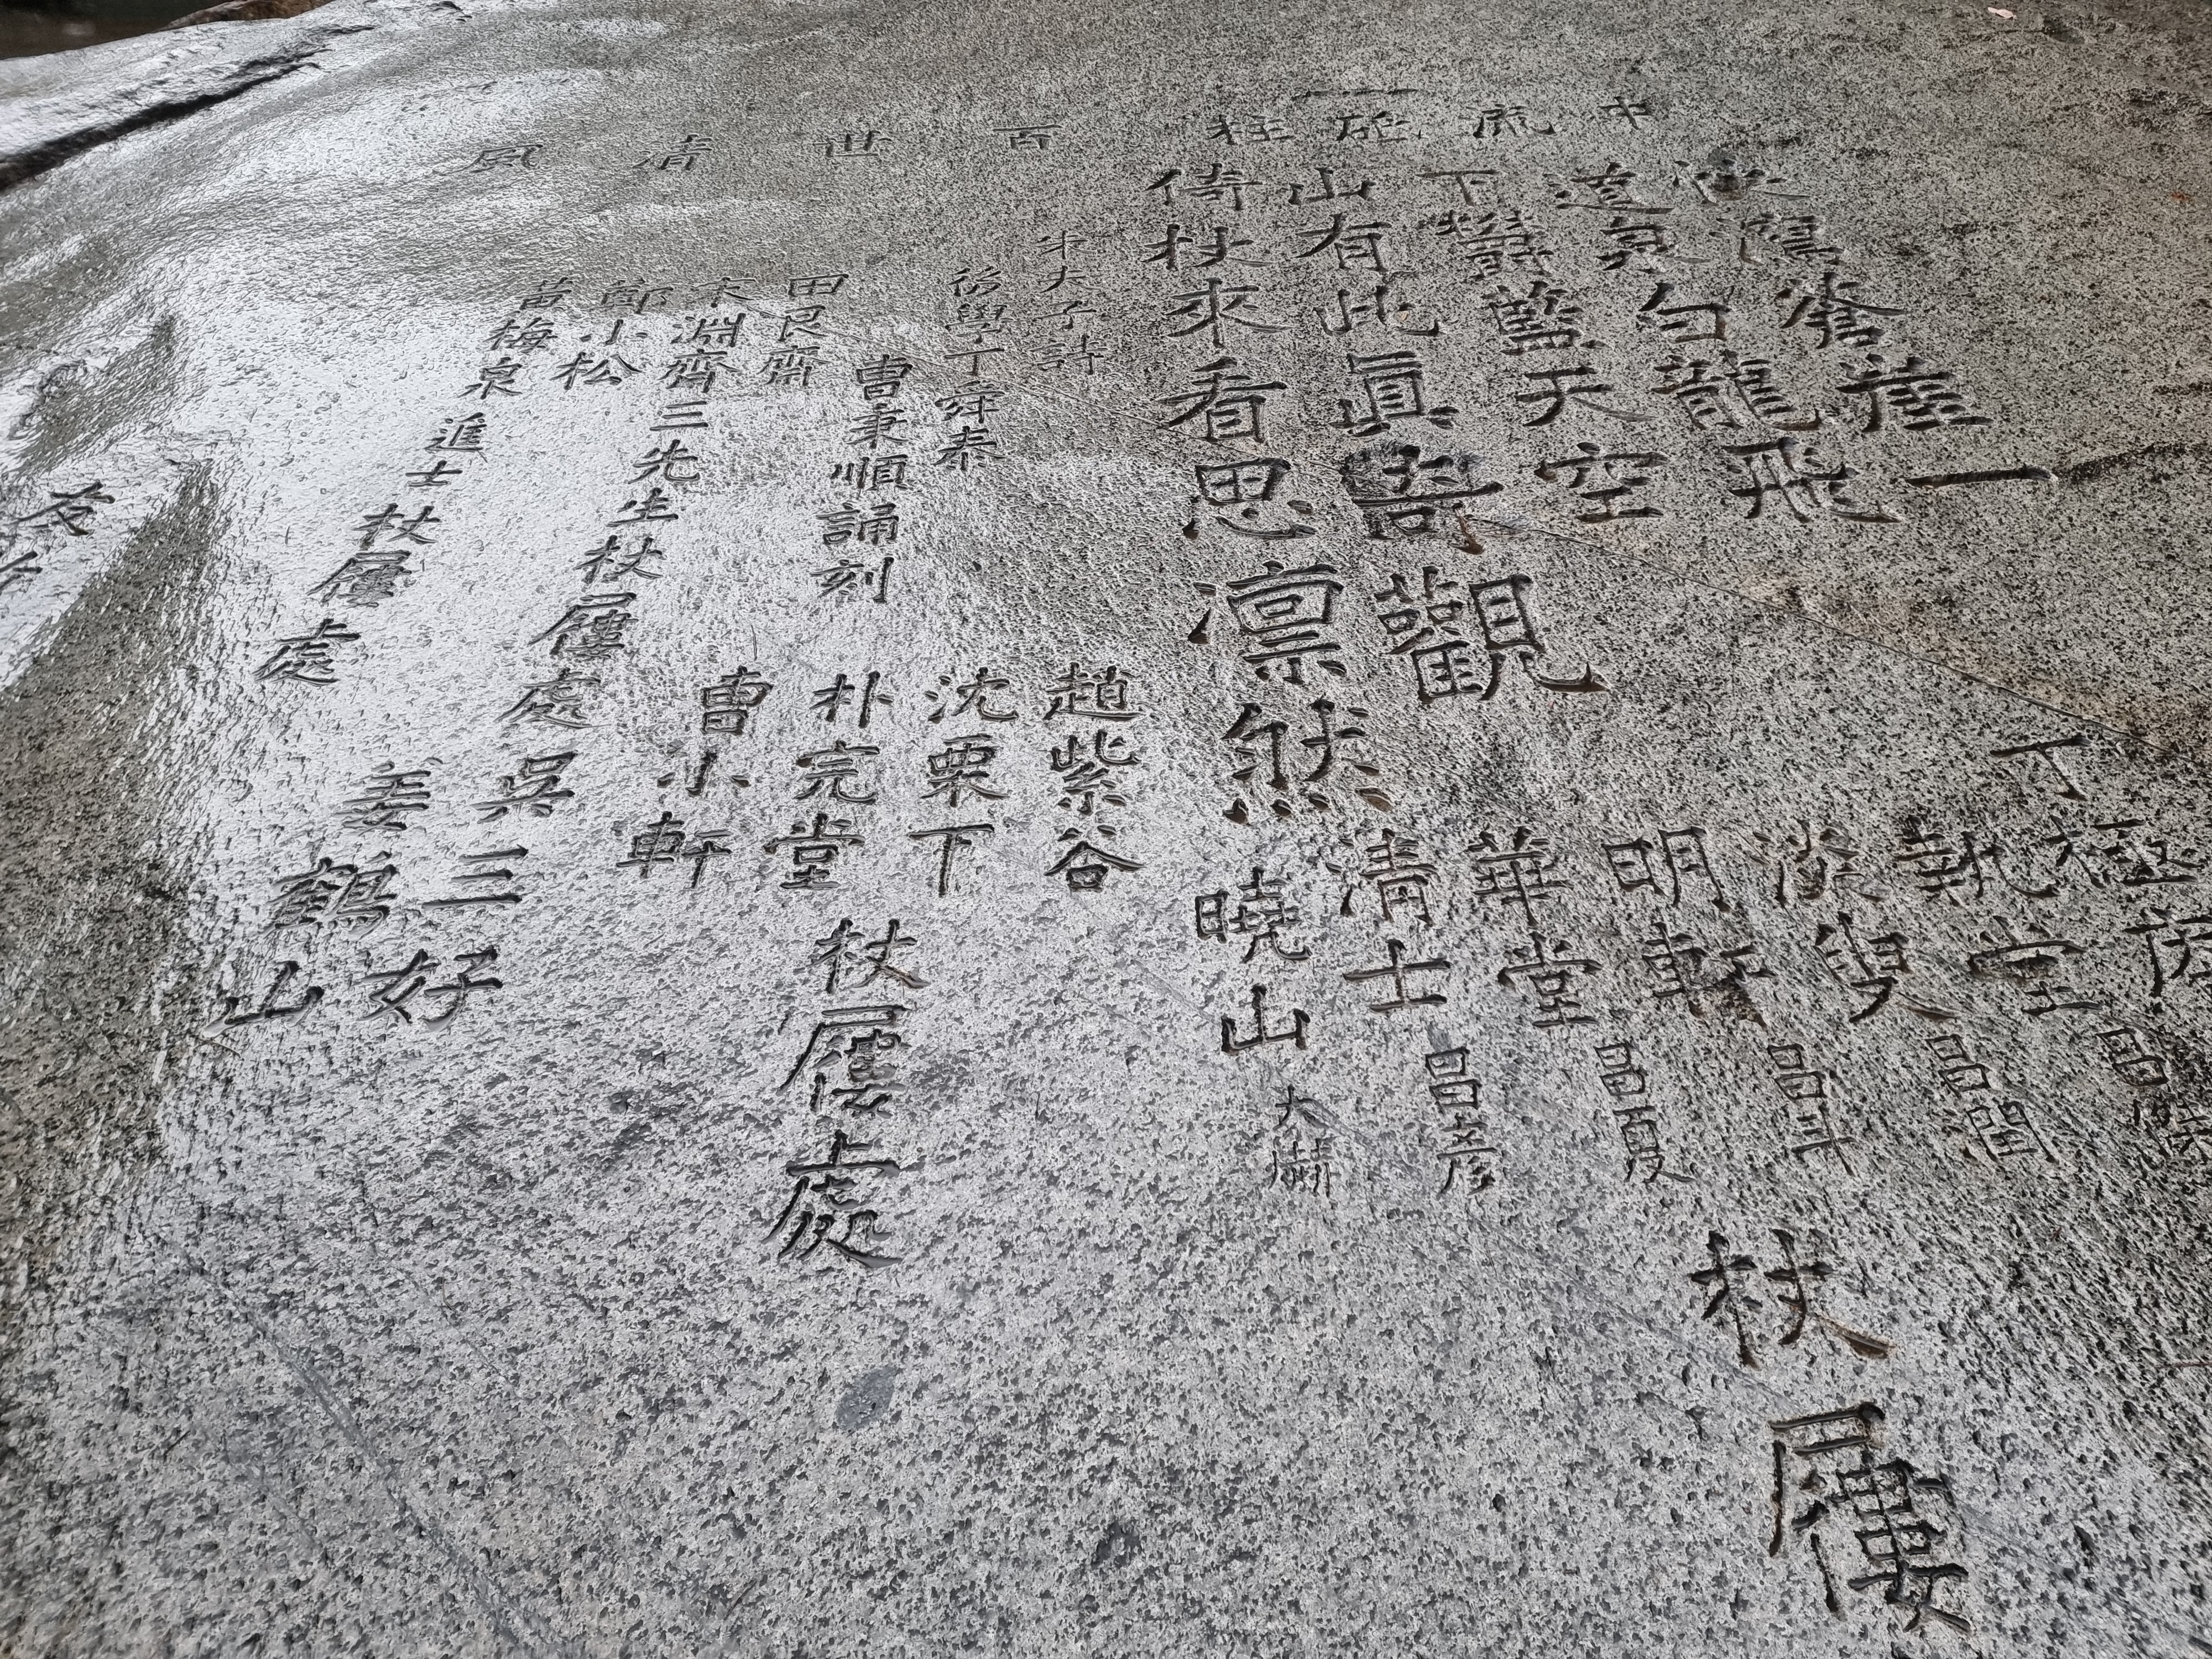 中流砥柱
百世清風
快瀉蒼崖一
道泉白龍飛
下鬱藍天空
山有此眞奇觀
倚杖來看思凜然
朱夫子詩
後學丁舜泰
曺秉順誦刻
丁
執堂
叟昌閏
明軒昌
華堂昌夏
淸士昌彦
曉山大
杖屨
趙紫谷
沈栗下
朴完堂
曺小軒
杖屨處
田艮齋
宋淵齊
鄭小松
三先生杖屨處
黃梅泉進士杖屨處
吳三好
姜鶴山
友